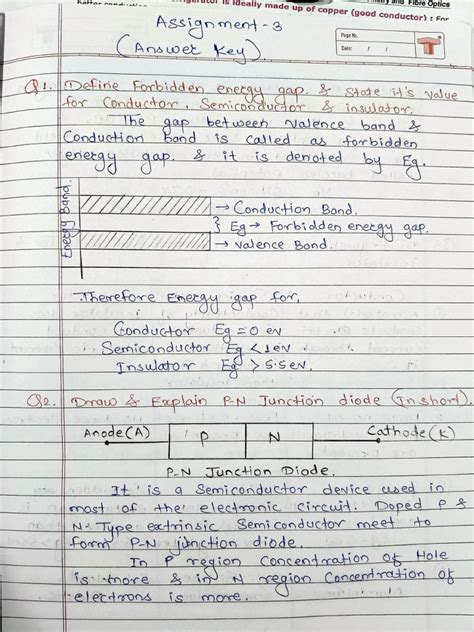 is ideally made up of copper (good conductor) : For
and Fibre Optics
Assignment - 3
(Answer Key)
Page No.
Date: / /
Q1. Define Forbidden energy gap. & State it's value
for Conductor, Semiconductor & insulator.
The gap between Valence band &
Conduction band is called as forbidden
energy gap. & it is denoted by Eg.
Energy Band.
→ Conduction Bond.
} Eg → Forbidden energy gap.
→ Valence Bond.
Therefore Energy gap for,
Conductor Eg = 0 eV
Semiconductor Eg < 1eV
Insulator Eg > 5.5eV.
Q2. Draw & Explain P-N Junction diode (In short).
Anode(A) P N Cathode(K)
P-N Junction Diode.
It is a Semiconductor device used in
most of the electronic circuit. Doped P &
N-Type extrinsic Semiconductor meet to
form P-N junction diode.
In P region Concentration of Hole
is more & in N region Concentration of
electrons is more.